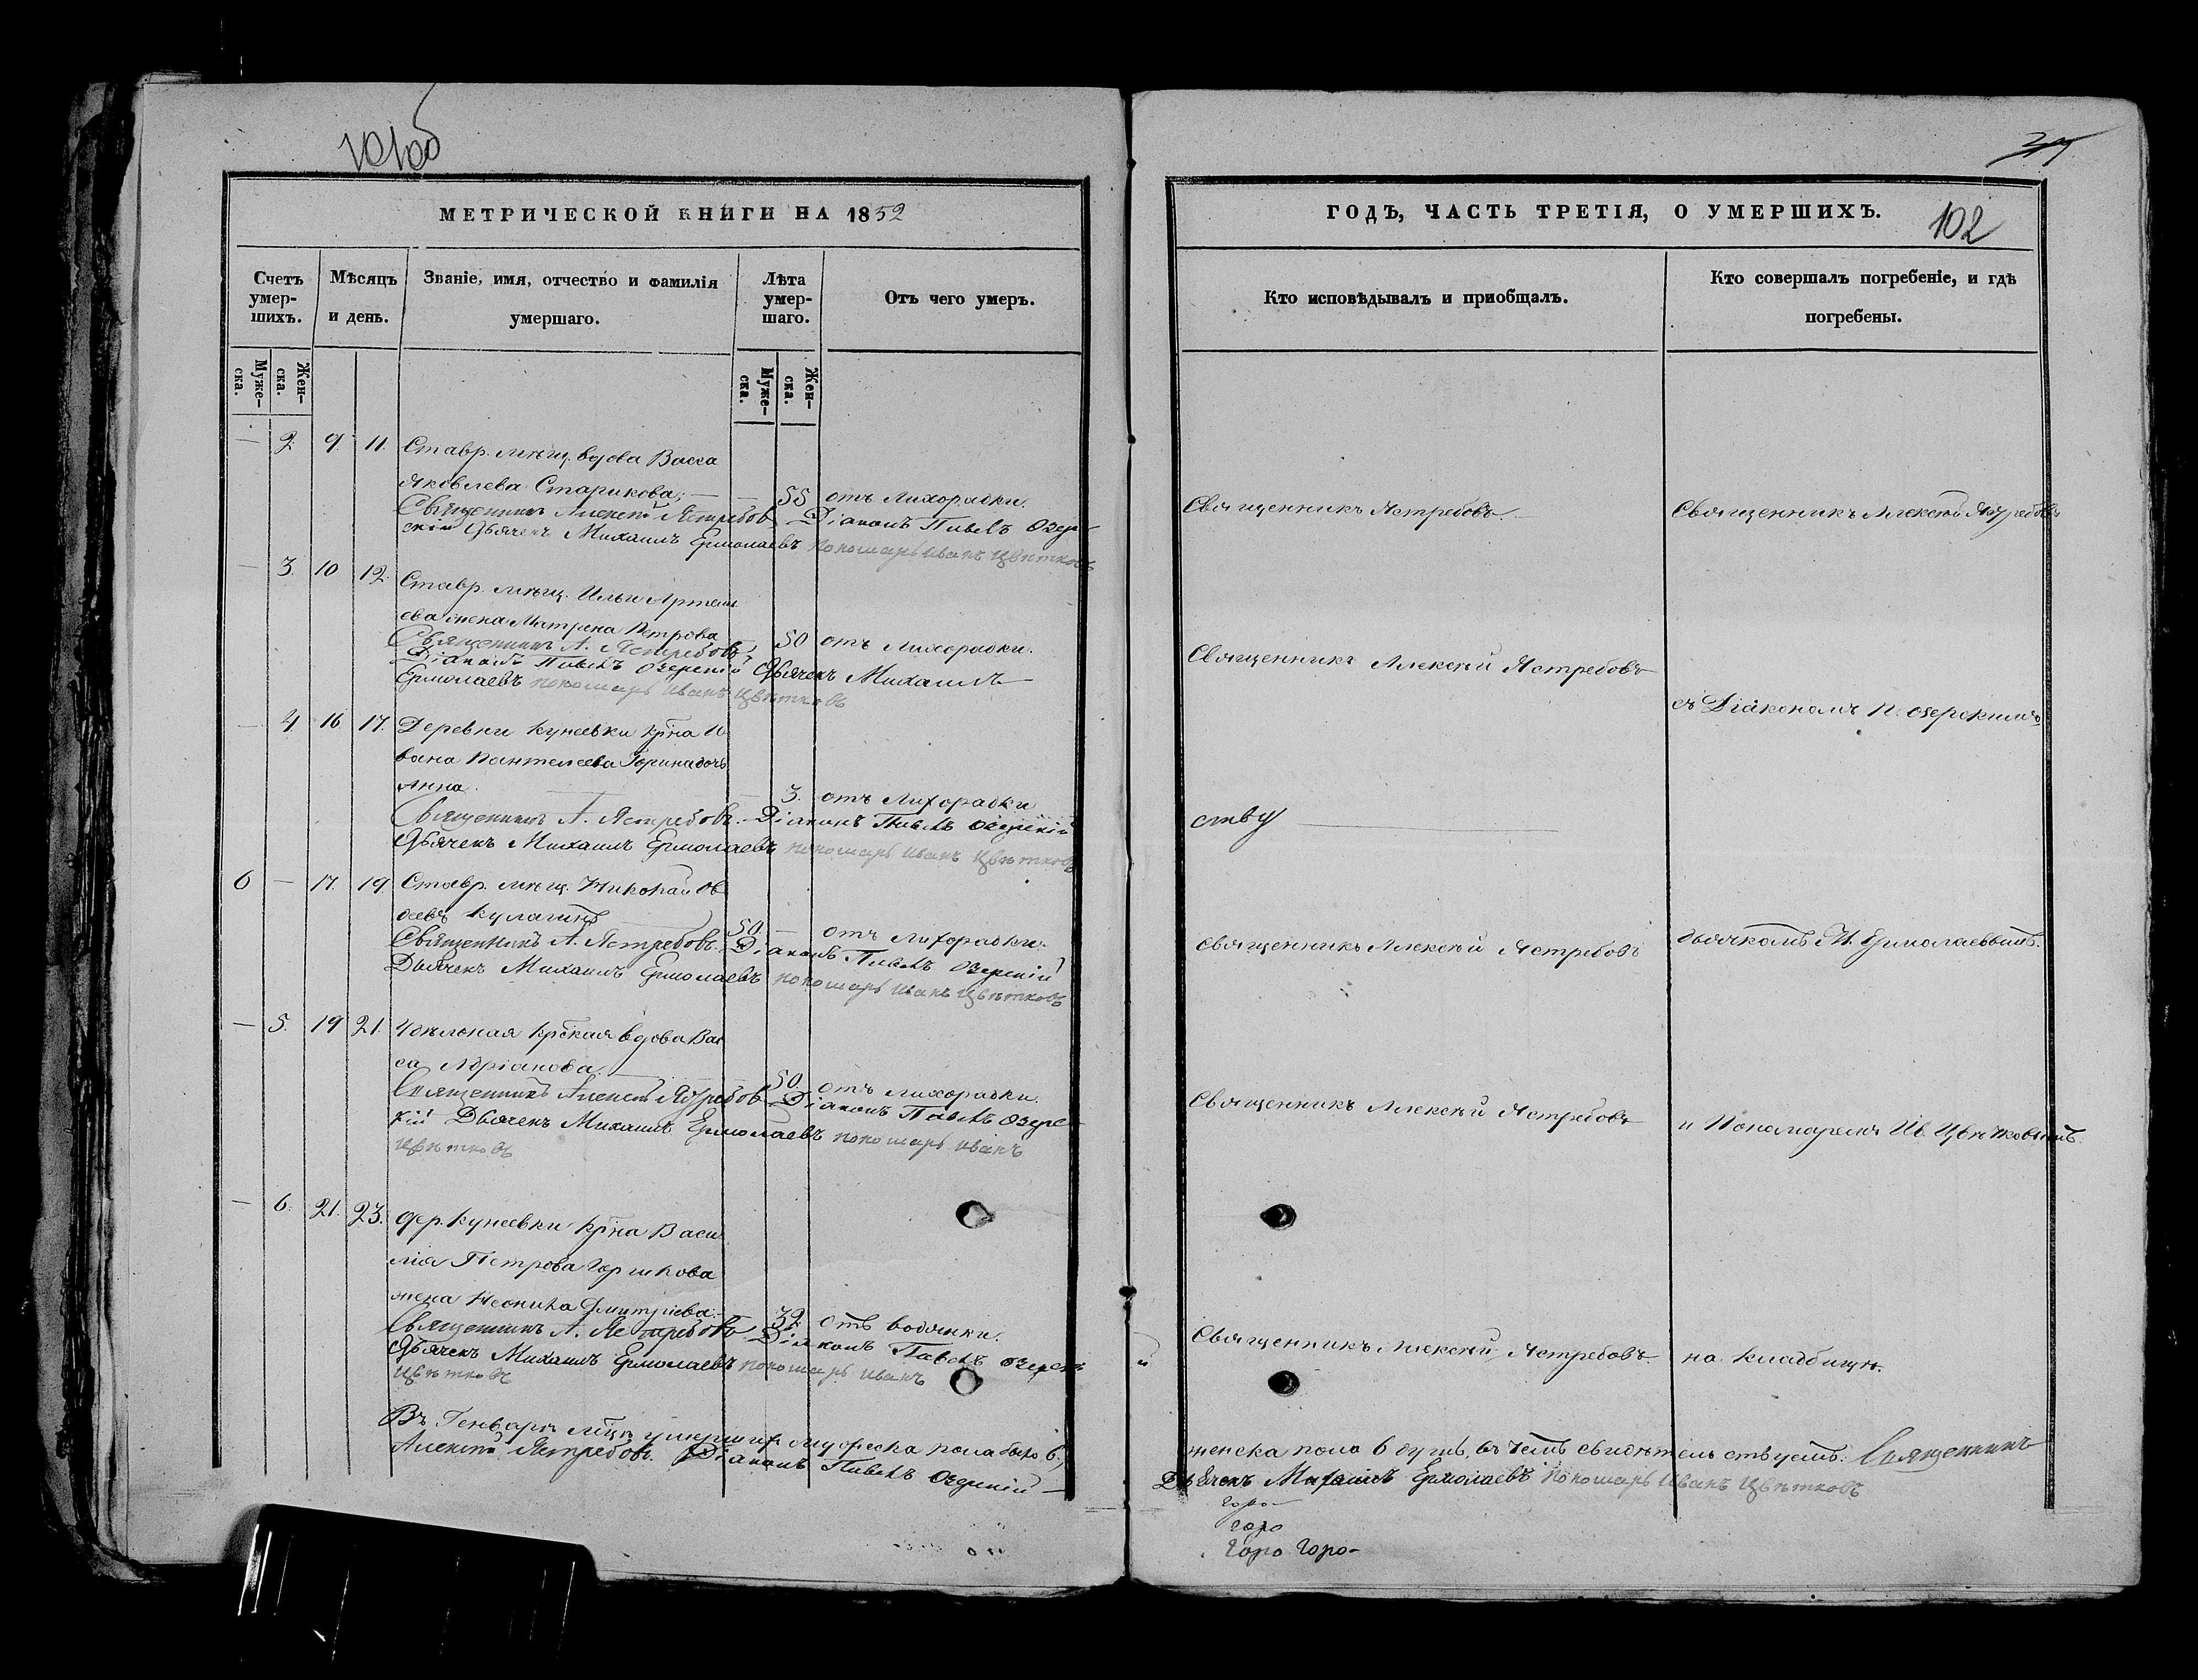 101об
МЕТРИЧЕСКОЙ КНИГИ НА 1852
Счетъ умер-шихъ.
Мѣсяцъ и день.
Званіе, имя, отчество и фамилія умершаго.
Лѣта умер-шаго.
Отъ чего умеръ.
Муже-ска.
Жен-ска.
Муже-ска.
Жен-ска.
— 2. 9. 11. Ставр. мѣщ. вдова Васса
Яковлева Старикова; — — 55 отъ лихорадки.
Священникъ Алексѣй Ястребовъ Діаконъ Павелъ Озерe-
скій Дьячекъ Михаилъ Ермолаевъ Пономарь Иванъ Цвѣтковъ
— 3. 10 12. Ставр. мѣщ. Ильи Артемь
ева жена Матрена Петрова 50 отъ лихорадки.
Священникъ А. Ястребовъ,
Діаконъ Павелъ Озерскій Дьячекъ Михаилъ
Ермолаевъ Пономарь Иванъ Цвѣтковъ
— 4. 16. 17. Деревни Кунеевки кр͠на И
вана Пантелеева Горина дочь
Анна. — 3. отъ лихорадки
Священникъ А. Ястребовъ. Діаконъ Павелъ Озерскій
Дьячекъ Михаилъ Ермолаевъ Пономарь Иванъ Цвѣтковъ
6 — 17. 19 Ставр. мѣщ. Николай Ов
деевъ Кулагинъ 50. — отъ лихорадки.
Священникъ А. Ястребовъ. Діаконъ Павелъ Озерскій
Дьячекъ Михаилъ Ермолаевъ Пономарь Иванъ Цвѣтковъ
— 5. 19 21. Удѣльная кр͠ская вдова Вас
са Адріанова. — 50. отъ лихорадки.
Священникъ Алексѣй Ястребовъ Діаконъ Павелъ Озерс-
кій Дьячекъ Михаилъ Ермолаевъ Пономарь Иванъ
Цвѣтковъ
— 6. 21. 23. Дер. Кунеевки кр͠на Васи
лія Петрова Горшкова
жена Неонила Дмитріева. 32. отъ водянки.
Священникъ А. Ястребовъ Діаконъ Павелъ Озерскі
Дьячекъ Михаилъ Ермолаевъ Пономарь Иванъ
Цвѣтковъ
Въ Генварѣ мѣ͠цѣ умершихъ мужеска пола было 6.,
Алексѣй Ястребовъ. Діаконъ Павелъ Озерскій —
ГОДЪ, ЧАСТЬ ТРЕТІЯ, О УМЕРШИХЪ.
102
Кто исповѣдывалъ и приобщалъ.
Кто совершалъ погребеніе, и гдѣ погребены.
Священникъ Ястребовъ.
Священникъ Алексѣй Ястребовъ
Священникъ Алексѣй Ястребовъ
съ Діакономъ П. Озерскимъ
Священникъ Алексѣй Ястребовъ
дьячкомъ М. Ермолаевымъ.
Священникъ Алексѣй Ястребовъ
и Пономаремъ Ив. Цвѣтковымъ.
й
Священникъ Алексѣй Ястребовъ.
на кладбищѣ.
женска пола 6 душъ, въ чемъ свидѣтельствуемъ: Священникъ
Дьячекъ Михаилъ Ермолаевъ Пономарь Иванъ Цвѣтковъ
Горо-
Горо
Горо Горо-